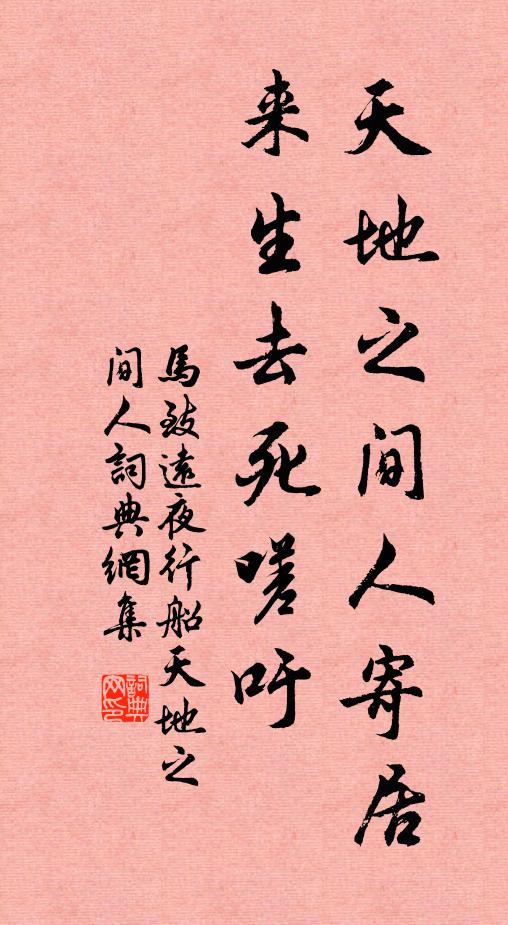 天地之间人寄居
来生去死嗟吁
馬致遠夜行船天地之
间人詞典網集
詞典
网印